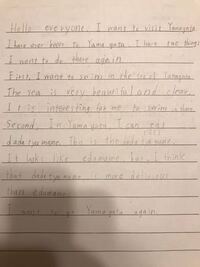 Hello everyone, I want to visit Yamagata
I have ever been to Yamagata. I have two things
I want to do there again
First, I want to swim in the sea of Yamagata.
The sea is very beautiful and clear.
It is interesting for me to swim in there.
Second, In Yamagata, I can eat
dadatyamame. This is the dadatyamame.
It looks like edamame, but, I think
that dadatyamame is more delicious
than edamame.
I want to go Yamagata again.